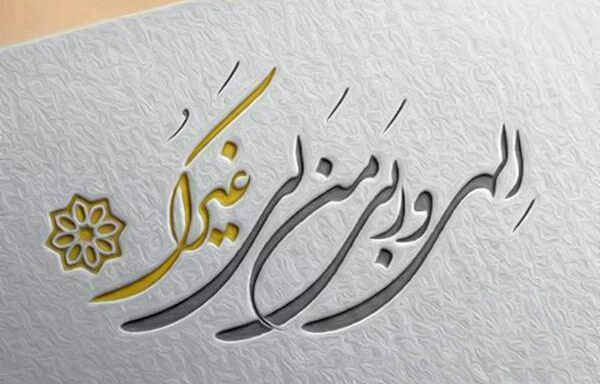 الهی وربی من لی غیرک